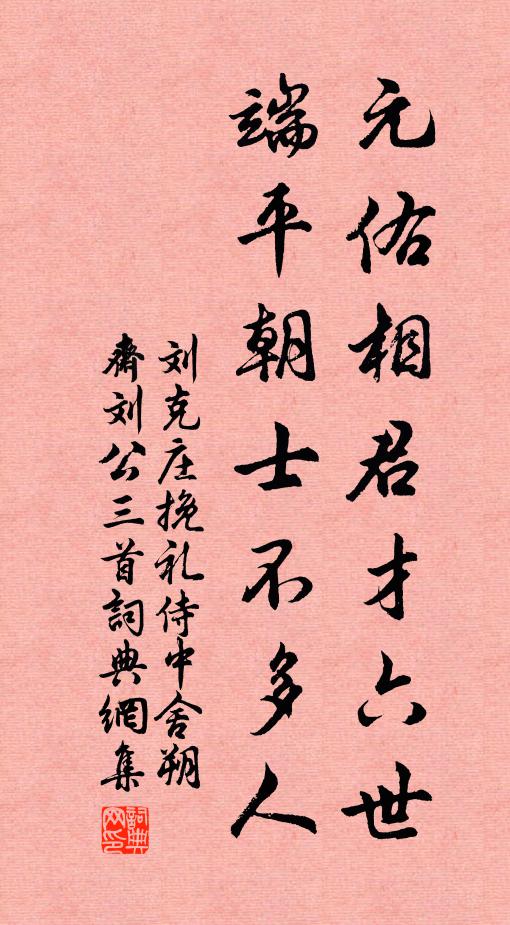 元佑相君才六世
端平朝士不多人
刘克庄挽礼侍中舍朔
斋刘公三首詞典網集
詞典网印